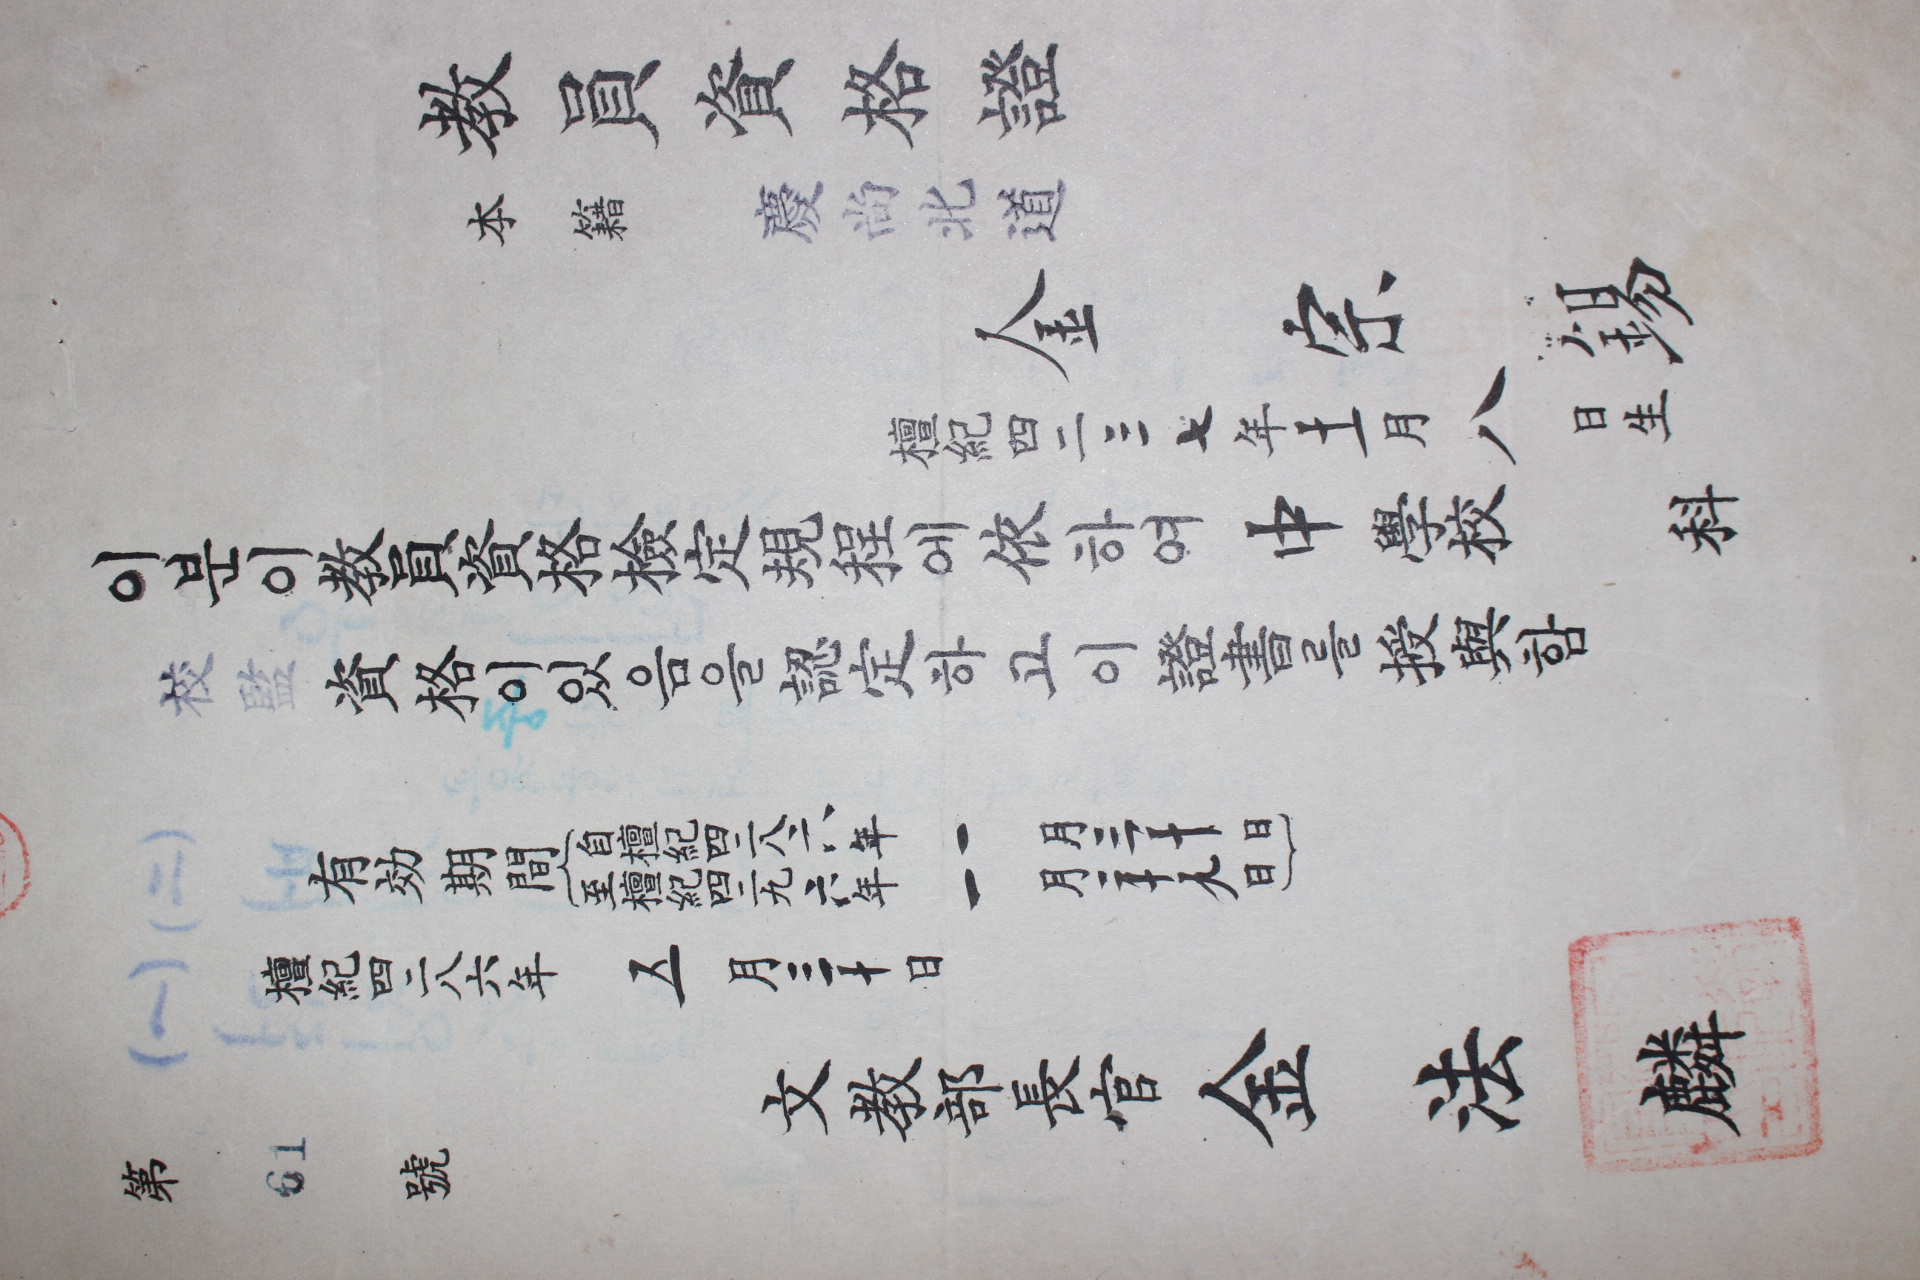 教員資格證
本籍 慶尚北道
金宗錫
檀紀四二三七年十一月八日生
이분이教員資格檢定規程에依하여 中學校 科
校監 資格이있음을認定하고이證書를授與함
有効期間 自檀紀四二八六年一月三十日
至檀紀四二九六年一月二十九日
(一)(二)
檀紀四二八六年 五月三十日
文教部長官 金法麟
第 61 號